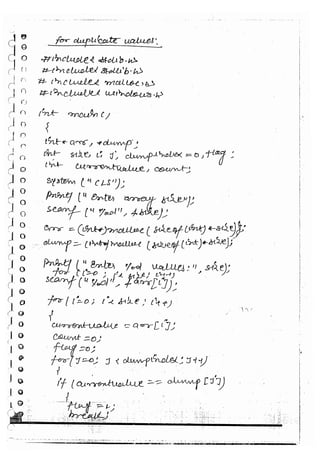 for duplicate values:
#include< stdio.h>
#include< stdlib.h>
# include< malloc.h>
#include< windows.h>
int main()
{
int * arr, *dump;
int size, i, j, dumpIndex = 0, flag;
int currentvalue, count;
system ("CLS");
printf (" Enter array size");
scanf ("%d", &size);
arr = (int*)malloc ( sizeof (int) * size);
dump= (int*)malloc (sizeof (int)* size);
printf (" Enter %d values:", size);
for (i=0; i< size; i++)
scanf ("%d", &arr[i]);
for (i=0; i< size; i++)
{
currentvalue = arr[i];
count =0;
flag =0;
for(j=0; j < dumpIndex; j++)
{
if (currentvalue == dump [j])
{
flag = 1;
break;